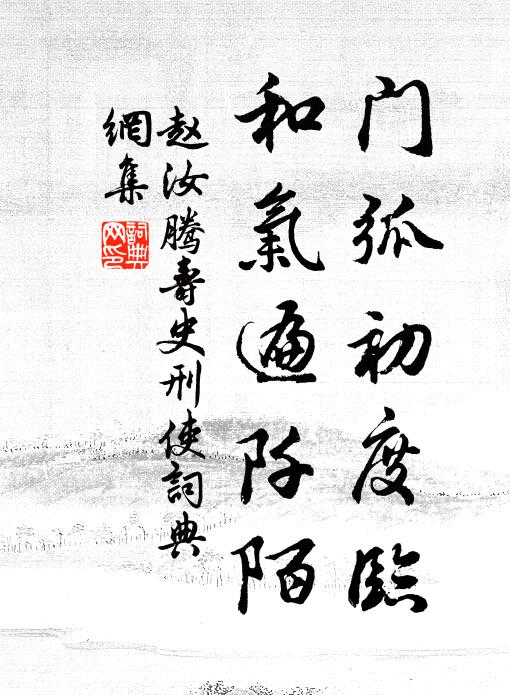 门弧初度臨
和氣遍阡陌
赵汝騰壽史刑使詞典
網集
詞典
网印